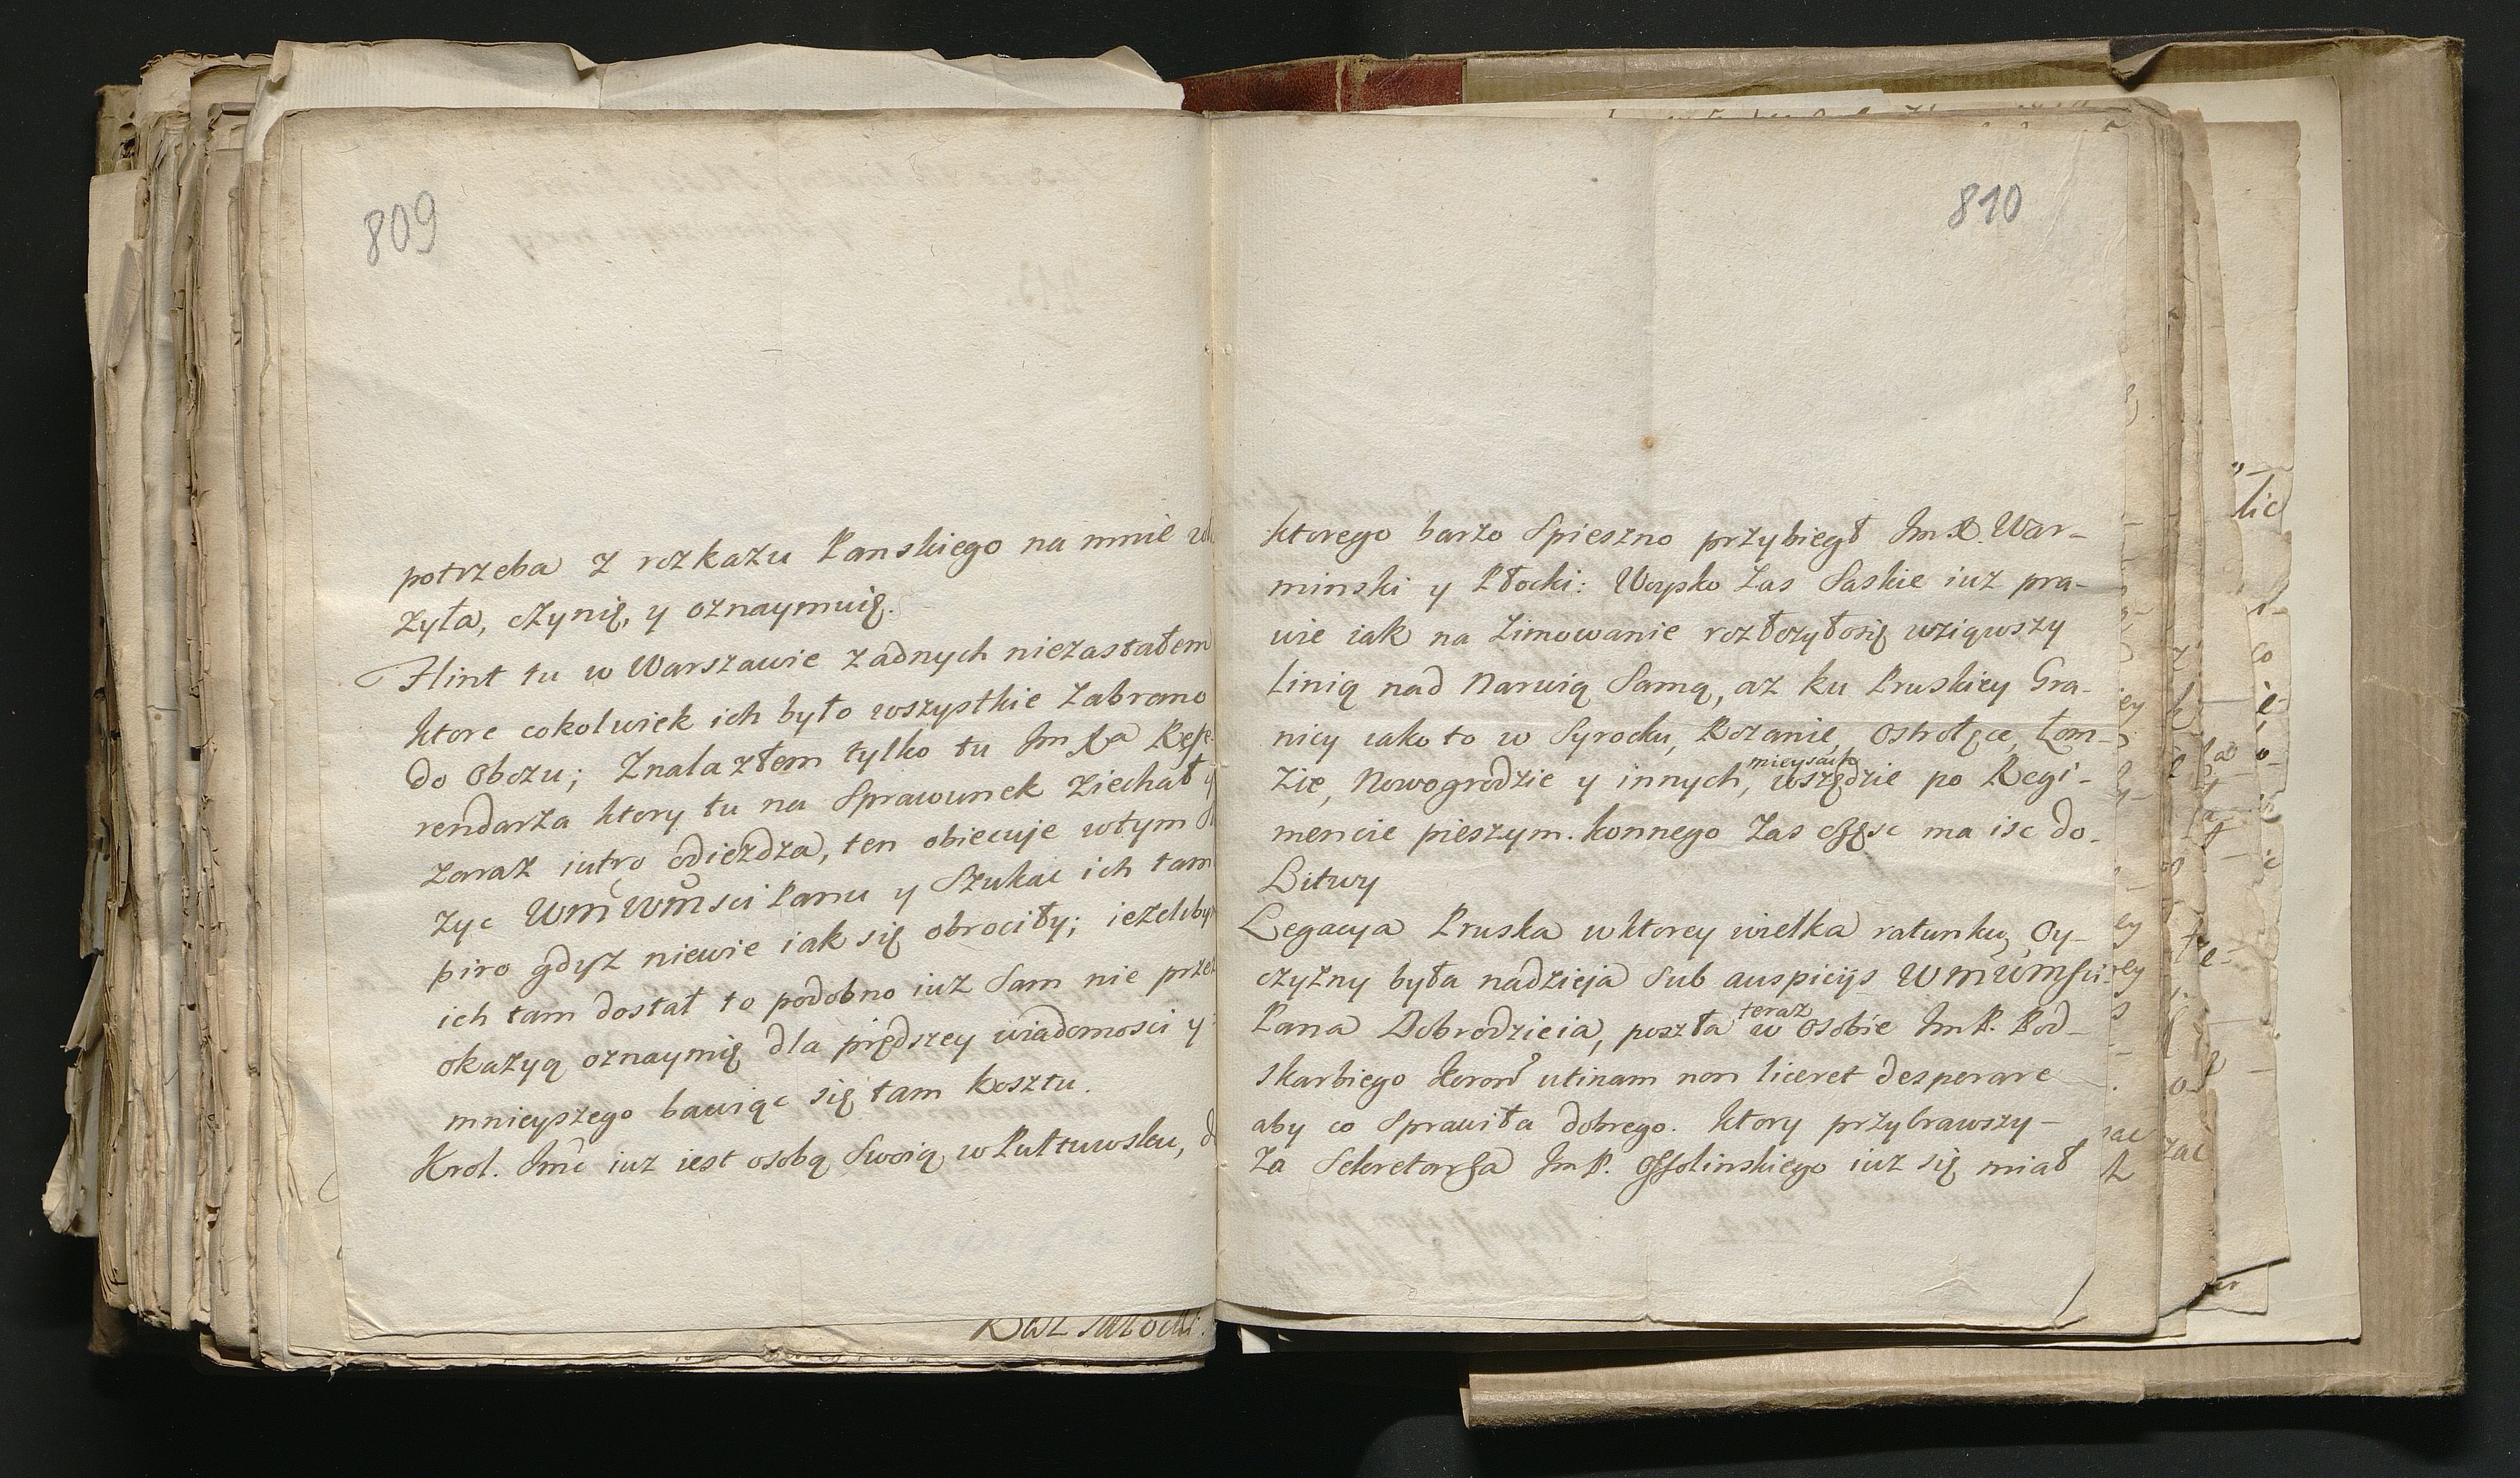 809
potrzeba z rozkazu Panskiego na mnie
zyła, czynię, y oznaymuię.
Flint tu w Warszawie zadnych niezastałem
ktore cokolwiek ich było wszystkie zabrano
do Obozu; Znalazłem tylko tu Im Xa Refe-
rendarza ktory tu na Sprawunek ziechał y
zaraz iutro odiezdza, ten obiecuje wtym
zyc WMWMsci Panu y Szukac ich tam
piro gdyz niewie iak się obrociły; iezeliby
ich tam dostał to podobno iuz Sam nie
okazyą oznaymię dla prędszey wiadomosci y
mnieyszego bawiąc się tam kosztu.
Krol. Imc iuz iest osobą Swoią w Pułtuwsku,
810
ktorego barzo Spieszno przybiegł Im X. War-
minski y Płocki: Woysko zas Saskie iuz pra-
wie iak na Zimowanie rozłozyłosię wziąwszy
linią nad Narwią Samą, az ku Pruskiey Gra-
nicy iako to w Syrocku, Rozanie, Ostrołęce, Łom-
zie, Nowogrodzie y innych, mieysach wszędzie po Regi-
mencie pieszym. konnego zas częsc ma isc do
Litwy
Legacya Pruska wktorey wielka ratunku Oy-
czyzny była nadzieja Sub auspicijs WMWMsci
Pana Dobrodzieia, poszła teraz w osobie Im P. Pod-
skarbiego Koron utinam non liceret desperare
aby co Sprawiła dobrego. ktory przybrawszy
za Sekretarza Im P. Ossolinskiego iuz się miał